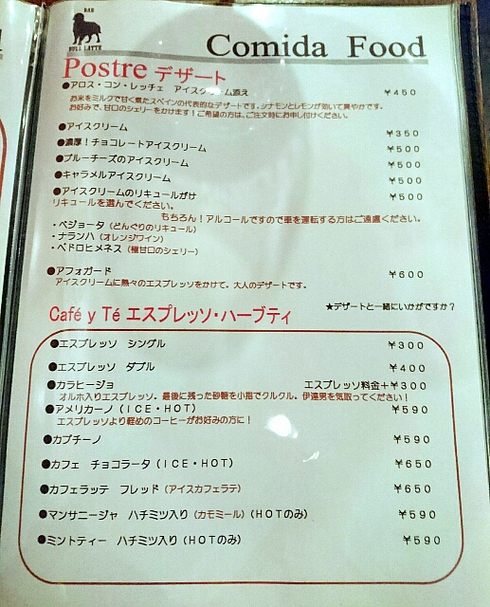 BAR
BULL LATTE
Comida Food
Postre デザート
●アロス・コン・レッチェ アイスクリーム添え ¥450
お米をミルクで甘く煮たスペインの代表的なデザートです。シナモンとレモンが効いて爽やかです。
お好みで、甘口のシェリーをかけます!ご希望の方は、ご注文時にお申し付けください。
●アイスクリーム ¥350
●濃厚!チョコレートアイスクリーム ¥500
●ブルーチーズのアイスクリーム ¥500
●キャラメルアイスクリーム ¥500
●アイスクリームのリキュールがけ ¥500
リキュールを選んでください。
もちろん!アルコールですので車を運転する方はご遠慮ください。
・ベジョータ(どんぐりのリキュール)
・ナランハ(オレンジワイン)
・ペドロヒメネス(極甘口のシェリー)
●アフォガード ¥600
アイスクリームに熱々のエスプレッソをかけて。大人のデザートです。
★デザートと一緒にいかがですか?
Café y Té エスプレッソ・ハーブティ
●エスプレッソ シングル ¥300
●エスプレッソ ダブル ¥400
●カラヒージョ エスプレッソ料金+¥300
オルホ入りエスプレッソ。最後に残った砂糖を小指でクルクル。伊達男を気取ってください!
●アメリカーノ(ICE・HOT) ¥590
エスプレッソより軽めのコーヒーがお好みの方に!
●カプチーノ ¥590
●カフェ チョコラータ(ICE・HOT) ¥650
●カフェラッテ フレッド(アイスカフェラテ) ¥650
●マンサニージャ ハチミツ入り(カモミール)(HOTのみ) ¥590
●ミントティー ハチミツ入り(HOTのみ) ¥590